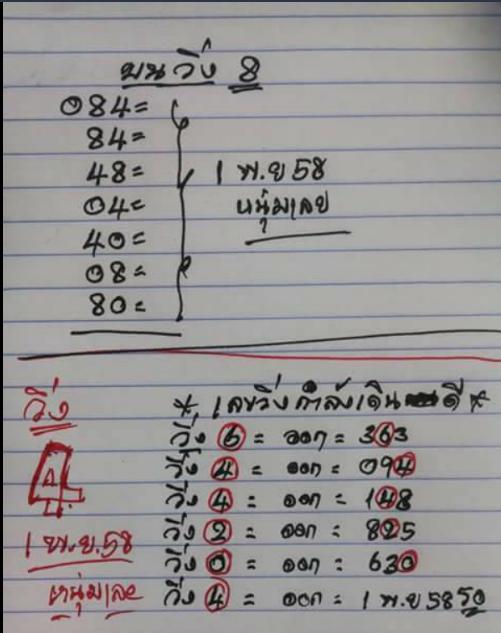 บนวิ่ง 8
084=
84=
48=
04=
40=
08=
80=
1 พ.ย 58
หนุ่มเลย
วิ่ง
4
1 พ.ย.58
หนุ่มเลย
* เลขวิ่งกำลังเดินดี *
วิ่ง 6 = ออก = 363
วิ่ง 4 = ออก = 094
วิ่ง 4 = ออก = 148
วิ่ง 2 = ออก = 825
วิ่ง 0 = ออก = 630
วิ่ง 4 = ออก = 1 พ.ย 58 50